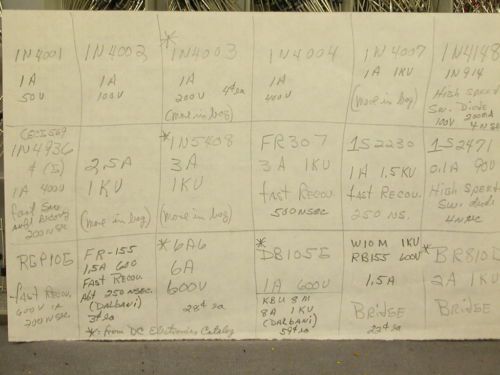 1N4001
1A
50V
1N4002
1A
100V
*
1N4003
1A
200V 4¢ea
(more in bag)
1N4004
1A
400V
1N4007
1A 1KV
(more in bag)
1N4148
1N914
High speed
Sw. Diode
100V 200mA
4NSec
1N4936
1A 400V
fast Sw.
200NSec
2,5A
1KV
(more in bag)
*1N5408
3A
1KV
(more in bag)
FR307
3A 1KV
fast Recov.
500nsec
1S2230
1A 1.5KV
fast Recov.
250 ns.
1S2471
0.1A 90V
High Speed
Sw. diode
4nsec
RGP10E
fast Recov.
600V 1A
200nSec
FR-155
1,5A 600
Fast Recov.
250 nsec.
(Dalbani)
3¢ea
*6A6
6A
600V
28¢ ea
*: from DC Electronics Catalog
*
DB105S
1A 600V
KBU 8M
8A 1KV
(Dalbani)
59¢ea
W10M 1KV
RB155 600V
1.5A
Bridge
22¢ ea
*BR810D
2A 1KV
Bridge